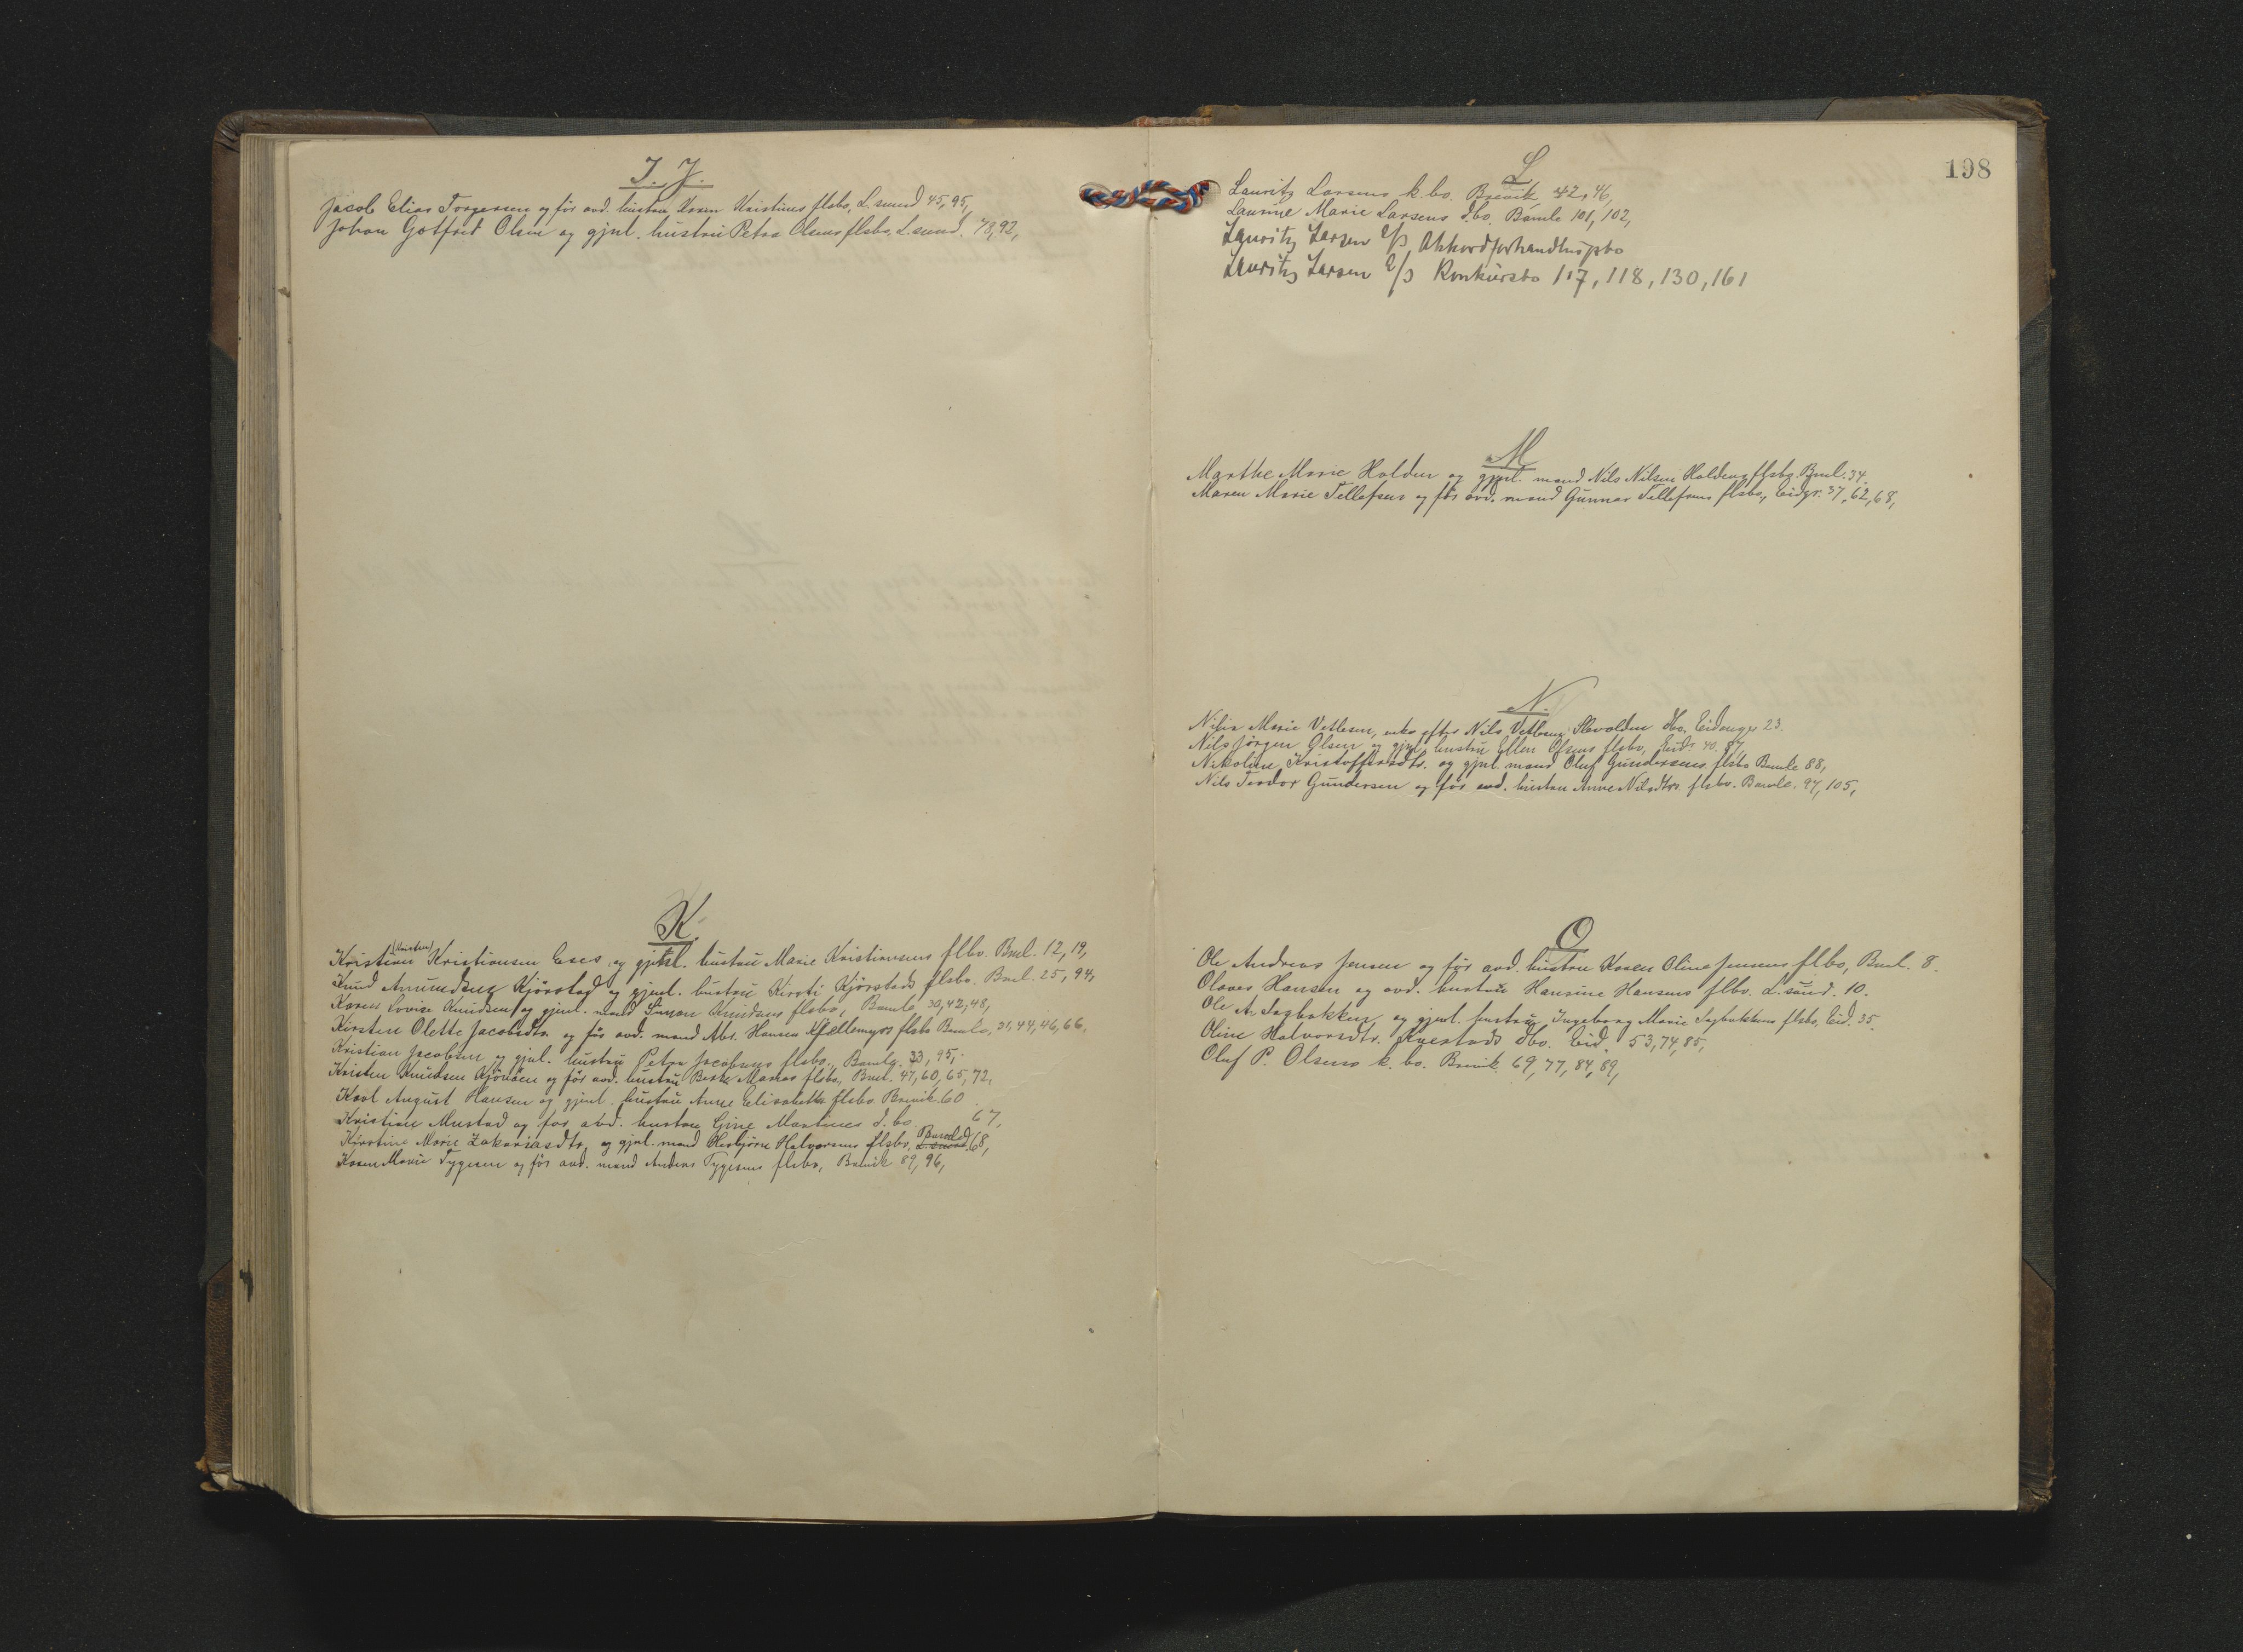 I. J.
Jacob Elias Torgersen og før avd. hustru Karen Kristines flsbo, L.sund 45, 95,
Johan Gotfred Olsen og gjenl. hustru Petra Olsens flsbo. L.sund. 78, 92,
K.
(Kristen)
Kristian Kristiansen Eses og gjenl. hustru Marie Kristiansens flbo. Bml. 12, 19,
Knud Amundsen Kjørstad og gjenl. hustru Kirsti Kjørstads flsbo. Bml. 25, 94,
Karen Lovise Knudsen og gjenl. mand Simon Knudsens flsbo, Bamle 30, 42, 48,
Kirsten Olette Jacobsdtr. og før avd. mand Abr. Hansen Kjellemyrs flsbo Bamle, 31, 44, 46, 66.
Kristian Jacobsen og gjenl. hustru Petra Jacobsens flsbo., Bamle. 33, 95,
Kristen Knudsen Kjønøen og før avd. hustru Berte Maries flsbo, Bml. 47, 60, 65, 72,
Karl August Hansen og gjenl. hustru Anne Elisabeths flsbo. Brevik. 60
Kristian Mustad og før abd. hustru Gine Martines d. bo. 67,
Kirstine Marie Zakariasdtr. og gjenl. mand Herbjørn Halvorsens flsbo, L.sund Bamle 68,
Karen Marie Tygesen og før avd. mand Anders Tygesens flsbo, Brevik 89, 96,
198
L
Lauritz Larsens k. bo. Brevik 42, 46,
Laurine Marie Larsens dbo. Bamle 101, 102,
Lauritz Larsen A/S Akkordforhandlingsbo
Lauritz Larsen A/S Konkursbo 117, 118, 130, 161
M
Marthe Marie Holden og gjenl. mand Nils Nilsen Holdens flsbo. Bml. 34.
Maren Marie Tellefsen og før avd. mand Gunnar Tellefsens flsbo, Eidgr. 37, 62, 68,
N.
Nilia Marie Vetlesen, enke efter Nils Vetlesen Slevolden dbo. Eidanger 23.
Nils Jørgen Olsen og gjenl. hustru Ellen Olsens flsbo, Eid. 40. 87,
Nikoline Kristoffersdtr. og gjenl. mand Oluf Gundersens flsbo Bamle 88,
Nils Teodor Gundersen og før avd. hustru Anne Nilsdtrs. flsbo. Bamle. 97, 105,
O
Ole Andreas Jensen og før avd. hustru Karen Oline Jensens flbo, Bml. 8.
Olaves Hansen og avd. hustru Hansine Hansens flbo. L.sund. 10.
Ole A. Sagbakken og gjenl. hustru Ingeborg Marie Sagbakkens flsbo, Eid. 35.
Oline Halvorsdtr. dbo. Eid. 53, 74, 85,
Oluf P. Olsens k. bo. Brevik 69, 77, 84, 89,